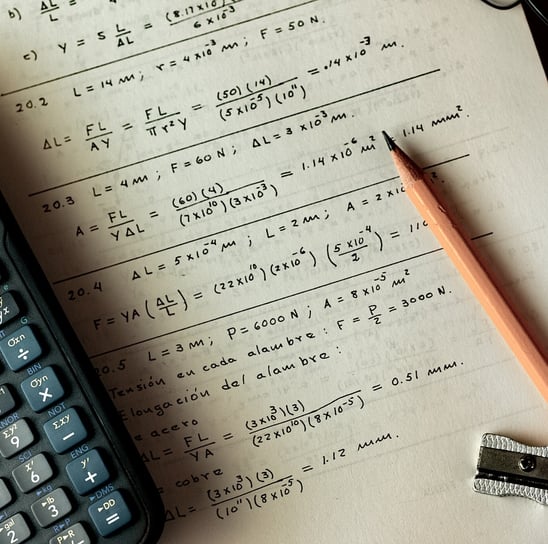 b) ΔL/L = (8.17×10 / 6×10⁻³
c) Y = S L/ΔL
20.2 L = 14 m; r = 4×10⁻³ m; F = 50 N.
ΔL = FL/AY = FL/πr²Y = (50)(14)/(5×10⁻⁵)(10¹¹) = .14×10⁻³ m.
20.3 L = 4 m; F = 60 N; ΔL = 3×10⁻³ m.
A = FL/YΔL = (60)(4)/(7×10¹⁰)(3×10⁻³) = 1.14×10⁻⁶ m² 1.14 mm².
20.4 ΔL = 5×10⁻⁴ m; L = 2 m; A = 2×10
F = YA(ΔL/L) = (22×10¹⁰)(2×10⁻⁶)(5×10⁻⁴/2) =
0.5 L = 3 m; P = 6000 N; A = 8×10⁻⁵ m²
Tensión en cada alambre: F = P/2 = 3000 N.
Elongación del alambre:
e acero
ΔL = FL/YA = (3×10³)(3)/(22×10¹⁰)(8×10⁻⁵) = 0.51 mm.
cobre
ΔL = (3×10³)(3)/(10¹¹)(8×10⁻⁵) = 1.12 mm.
G
Oxn
÷
Oyn
×
NOT
Σxy
−
Σy²
9
ENG
y'
+
x'
6
▸DMS
▸DD
=
▸lb
3
▸gal
2
R▸P
P▸R